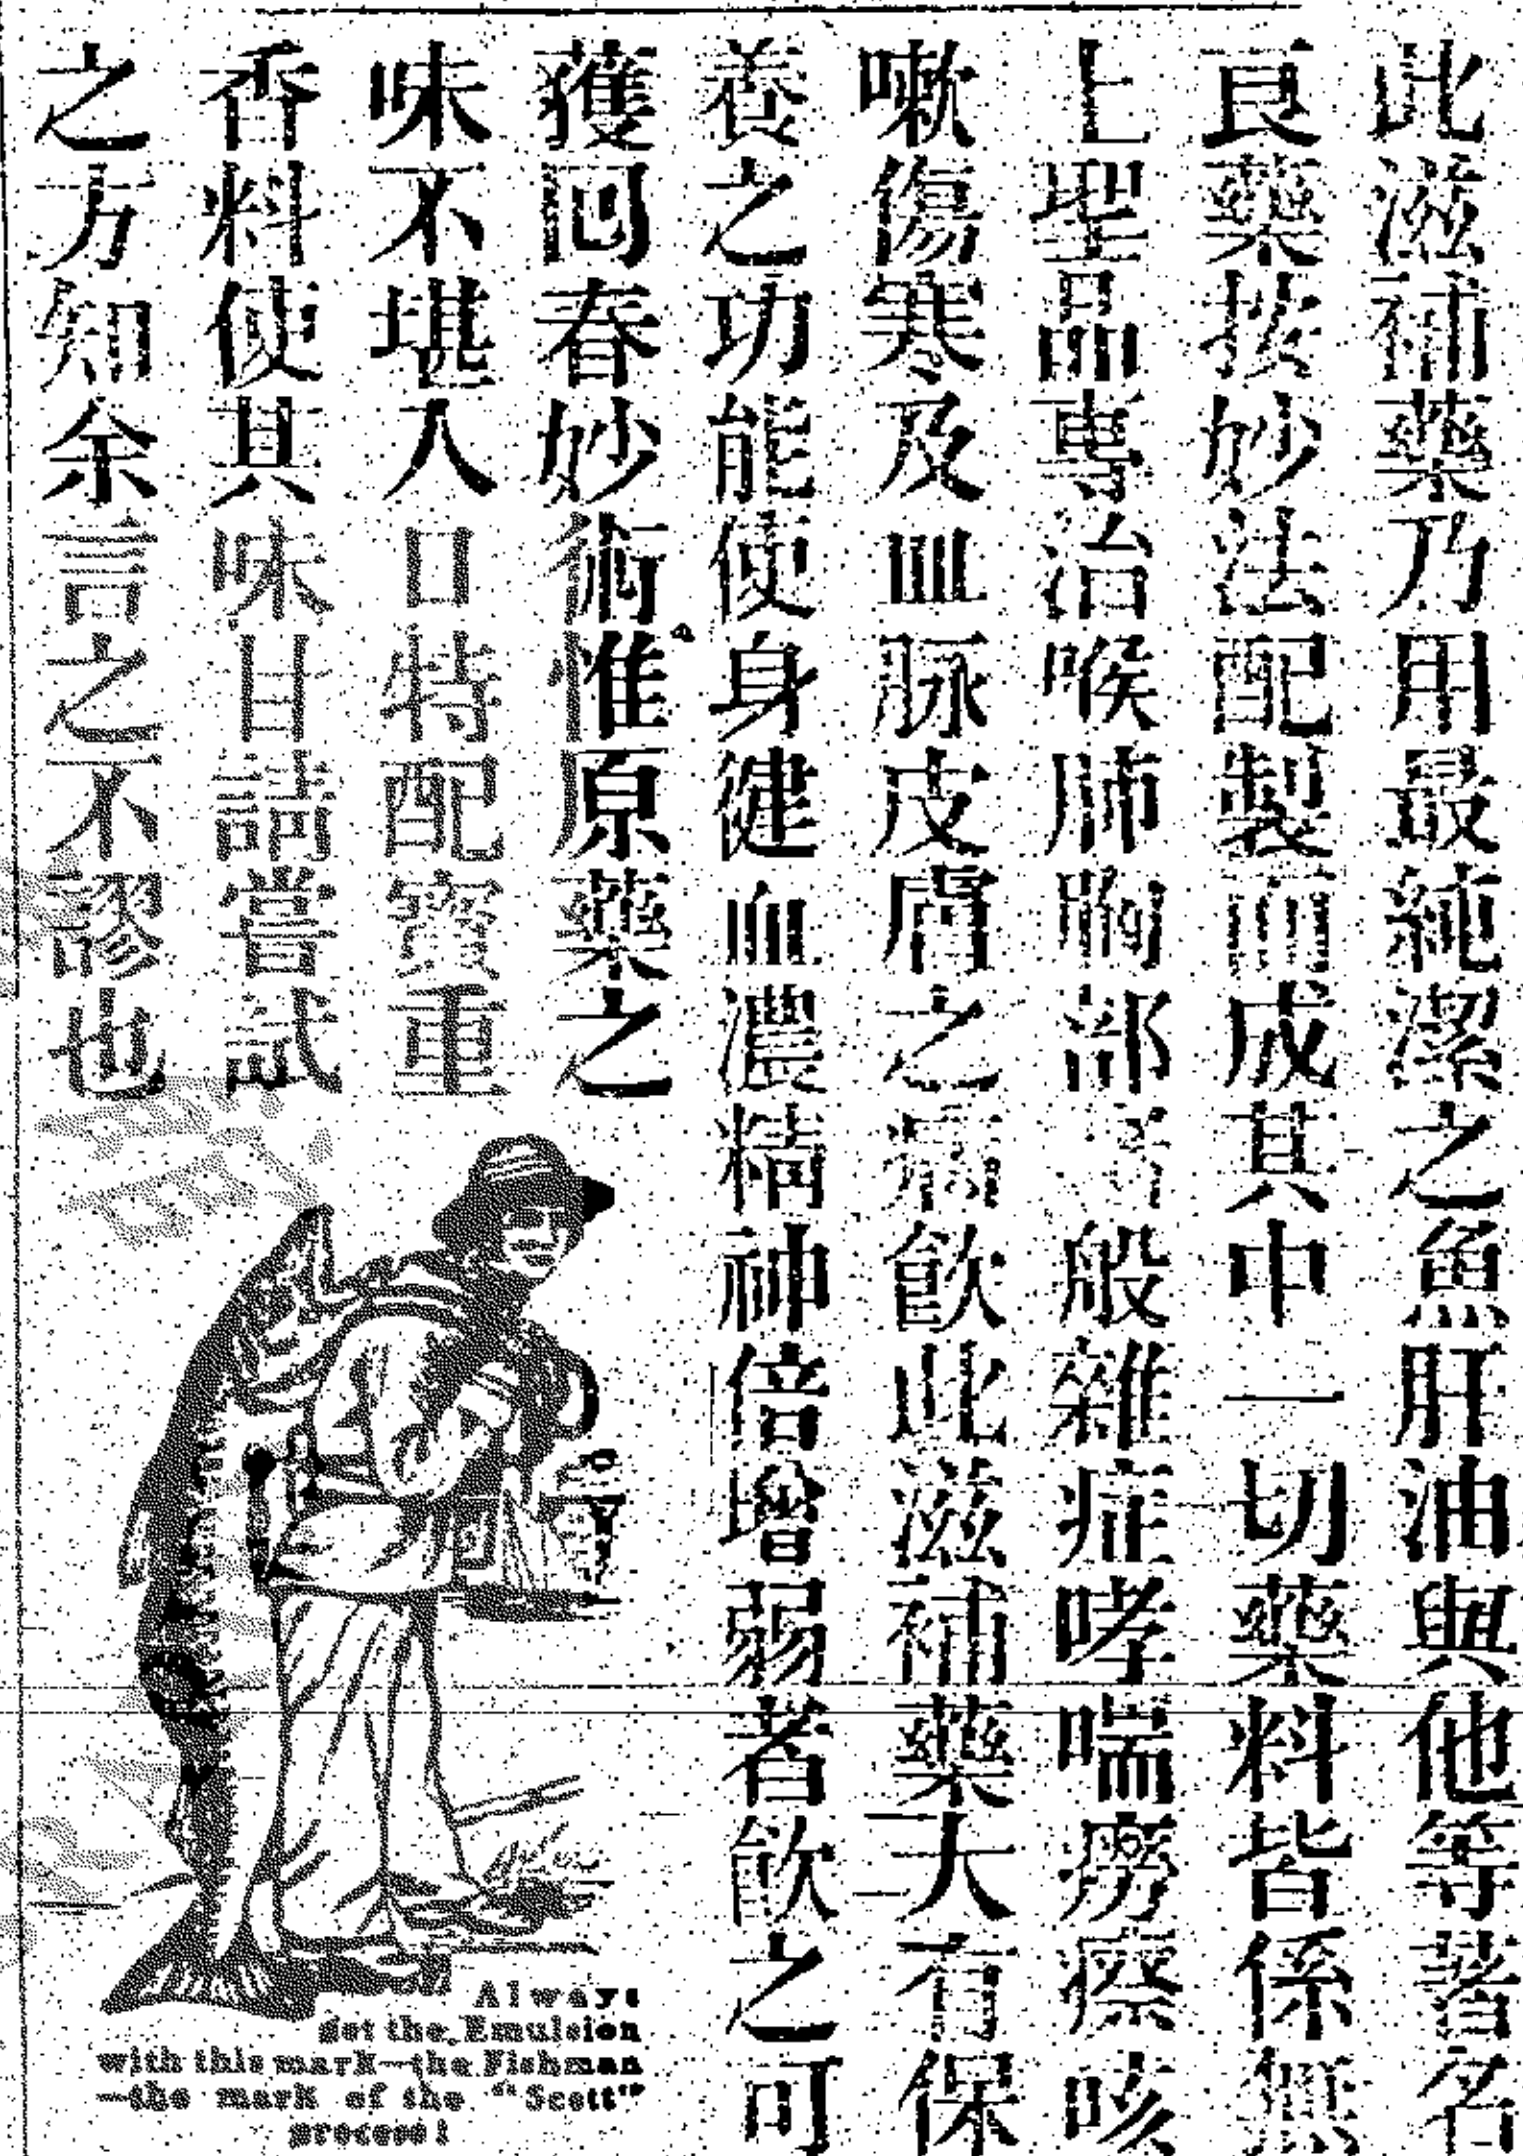 此滋補藥乃用最純潔之魚肝油與他等著名
良藥按妙法配製而成其中一切藥料皆係無
上聖品專治喉肺胸部 般雜症哮喘癆瘵咳
嗽傷寒及血脉皮膚之病飲此滋補藥大有保
養之功能使身健血濃精神倍增弱者飲之可
獲回春妙術惟原藥之
味不堪入口特配蜜重
香料使其味甘請嘗試
之方知余言之不謬也
Always
get the Emulsion
with this mark—the Fishman
—the mark of the "Scott"
process!